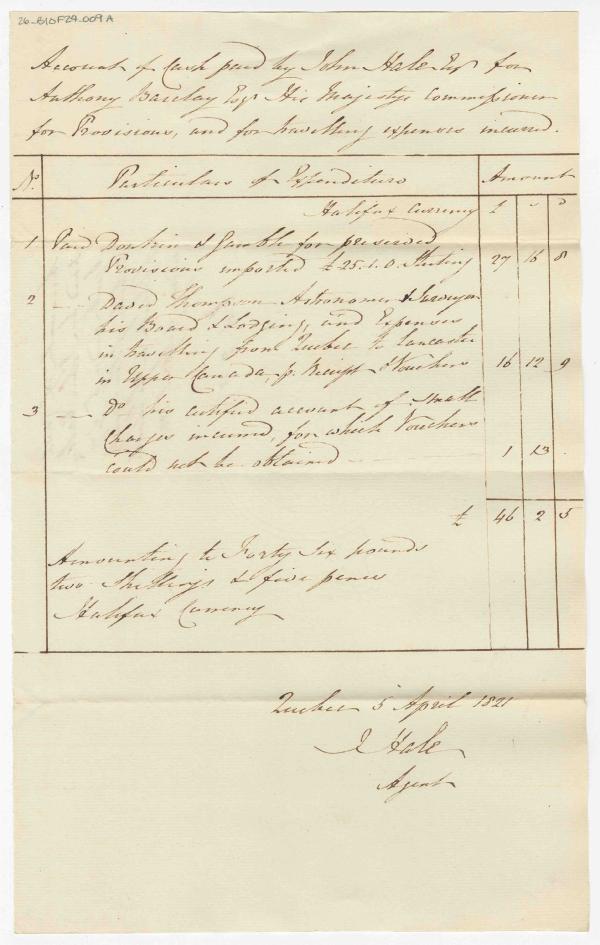 26-B10F24-009A
Account of Cash paid by John Hale Esqr for
Anthony Barclay Esqr His Majestys Commissioner
for Provisions, and for travelling expenses incurred.
No. Particulars of Expenditure Amount
Halifax Currency £ s D
1 Paid Donkin & Gamble for preserved
Provisions imported £25.1.0 Sterling 27 16 8
2 — David Thompson Astronomer & Surveyor
his Board & Lodging, and Expenses
in travelling from Quebec to Lancaster
in Upper Canada pr Receipt & Vouchers 16 12 9
3 — Do his certified account of small
Charges incurred, for which Vouchers
could not be obtained — 1 13 .
£ 46 2 5
Amounting to Forty Six pounds
two Shillings & five pence
Halifax Currency
Quebec 5 April 1821
J Hale
Agent